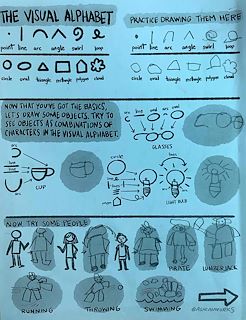 THE VISUAL ALPHABET
PRACTICE DRAWING THEM HERE
point line arc angle swirl loop
point line arc angle swirl loop
circle oval triangle rectangle polygon cloud
circle oval triangle rectangle polygon cloud
NOW THAT YOU'VE GOT THE BASICS,
LET'S DRAW SOME OBJECTS. TRY TO
SEE OBJECTS AS COMBINATIONS OF
CHARACTERS IN THE VISUAL ALPHABET.
line oval arc oval
GLASSES
arc
line
arc
CUP
circle
lines
loop
LIGHT BULB
NOW TRY SOME PEOPLE
PIRATE
LUMBERJACK
RUNNING
THROWING
SWIMMING